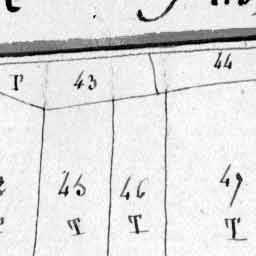 44
T 43
45 46 47
T T T